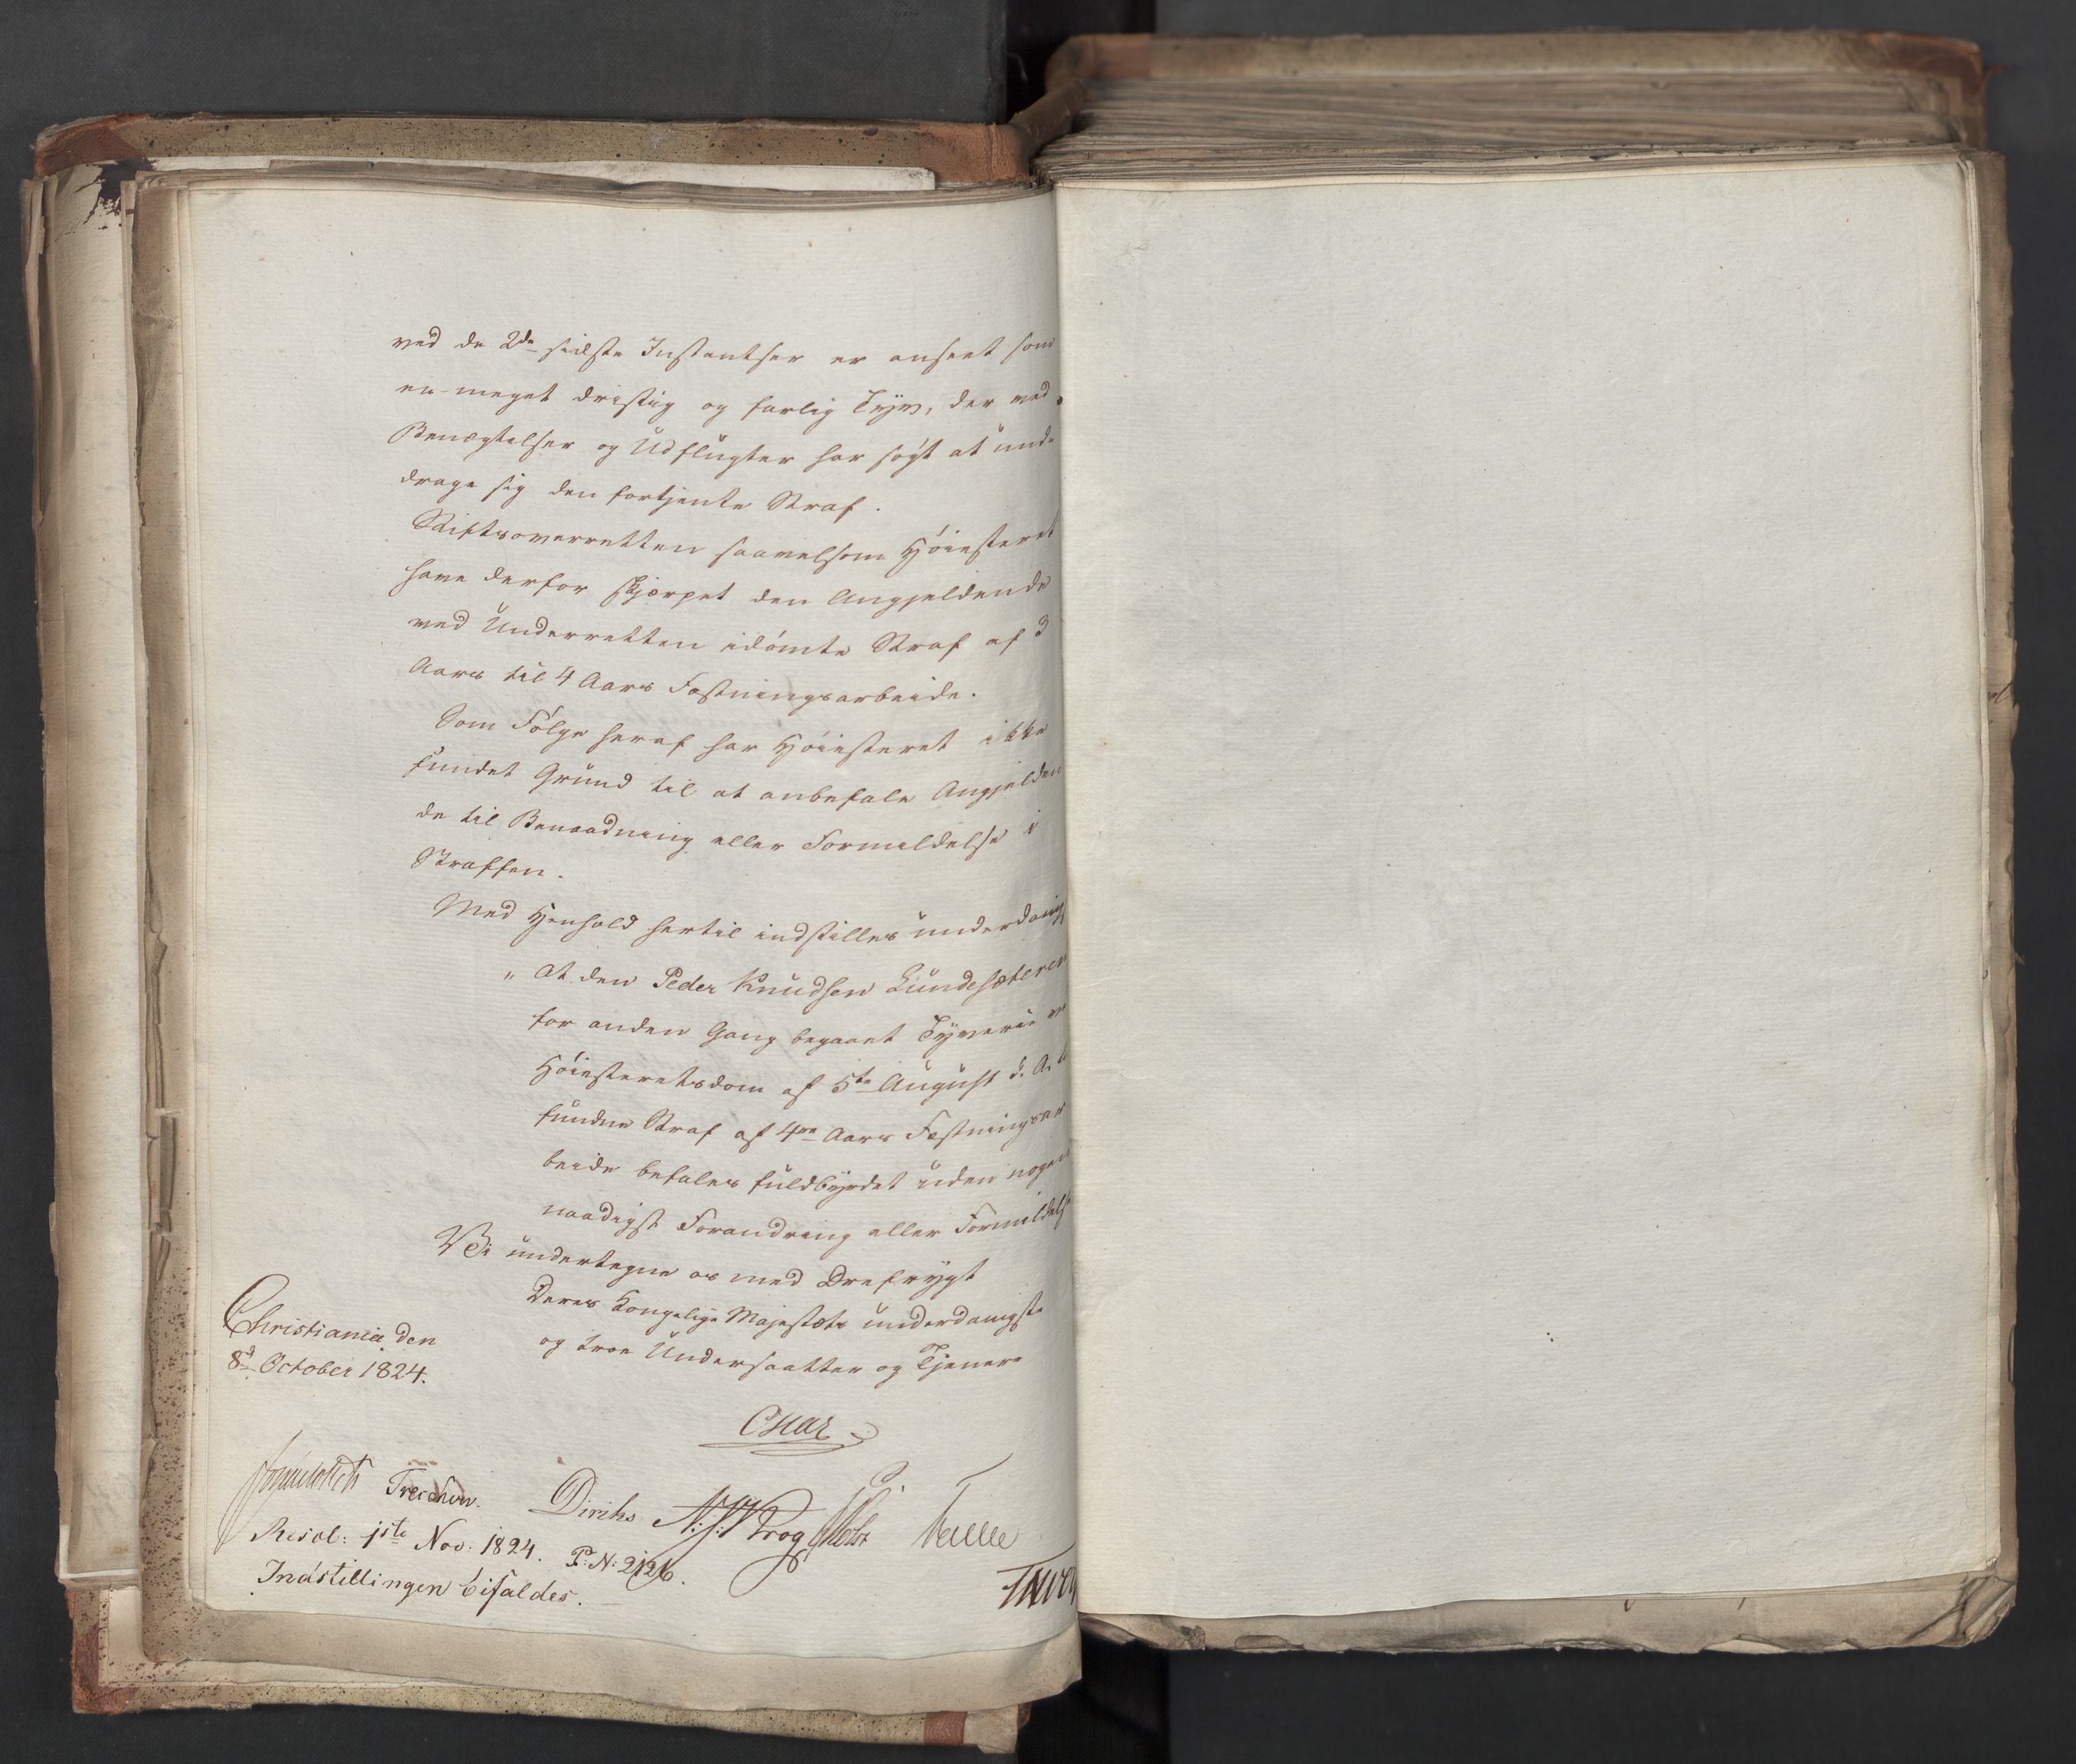 ved de 2de sidste Instantser er anseet som
en meget dristig og farlig Tyv, der ved
Benægtelser og Udflugter har søgt at und
drage sig den fortjente Straf.
Stiftsoverretten saavelsom Høiesteret
have derfor skjærpet den Angjeldende
ved Underretten idømte Straf af 3
Aars til 4 Aars Fæstningsarbeide.
Som Følge heraf har Høiesteret ikke
fundet Grund til at anbefale Angjelden
de til Benaadning eller Formildelse i
Straffen.
Med Henhold hertil indstilles underdanigst
„ At den Peder Knudsen Lundesæteren
for anden Gang begaaet Tyverie ve
Høiesteretsdom af 5te August d. A.
fundne Straf af 4re Aars Fæstningsar
beide befales fuldbyrdet uden nogen
naadigst Forandring eller Formildelse
Vi undertegne os med Ærefrygt
Deres Kongelige Majestæts underdanigste
og troe Undersaatter og Tjenere
Christiania den
8d October 1824.
Treschow. Diriks Krog Motzfeldt Fasting
Resol: 1ste Nov: 1824. P: N: 2126.
Indstillingen bifaldes.